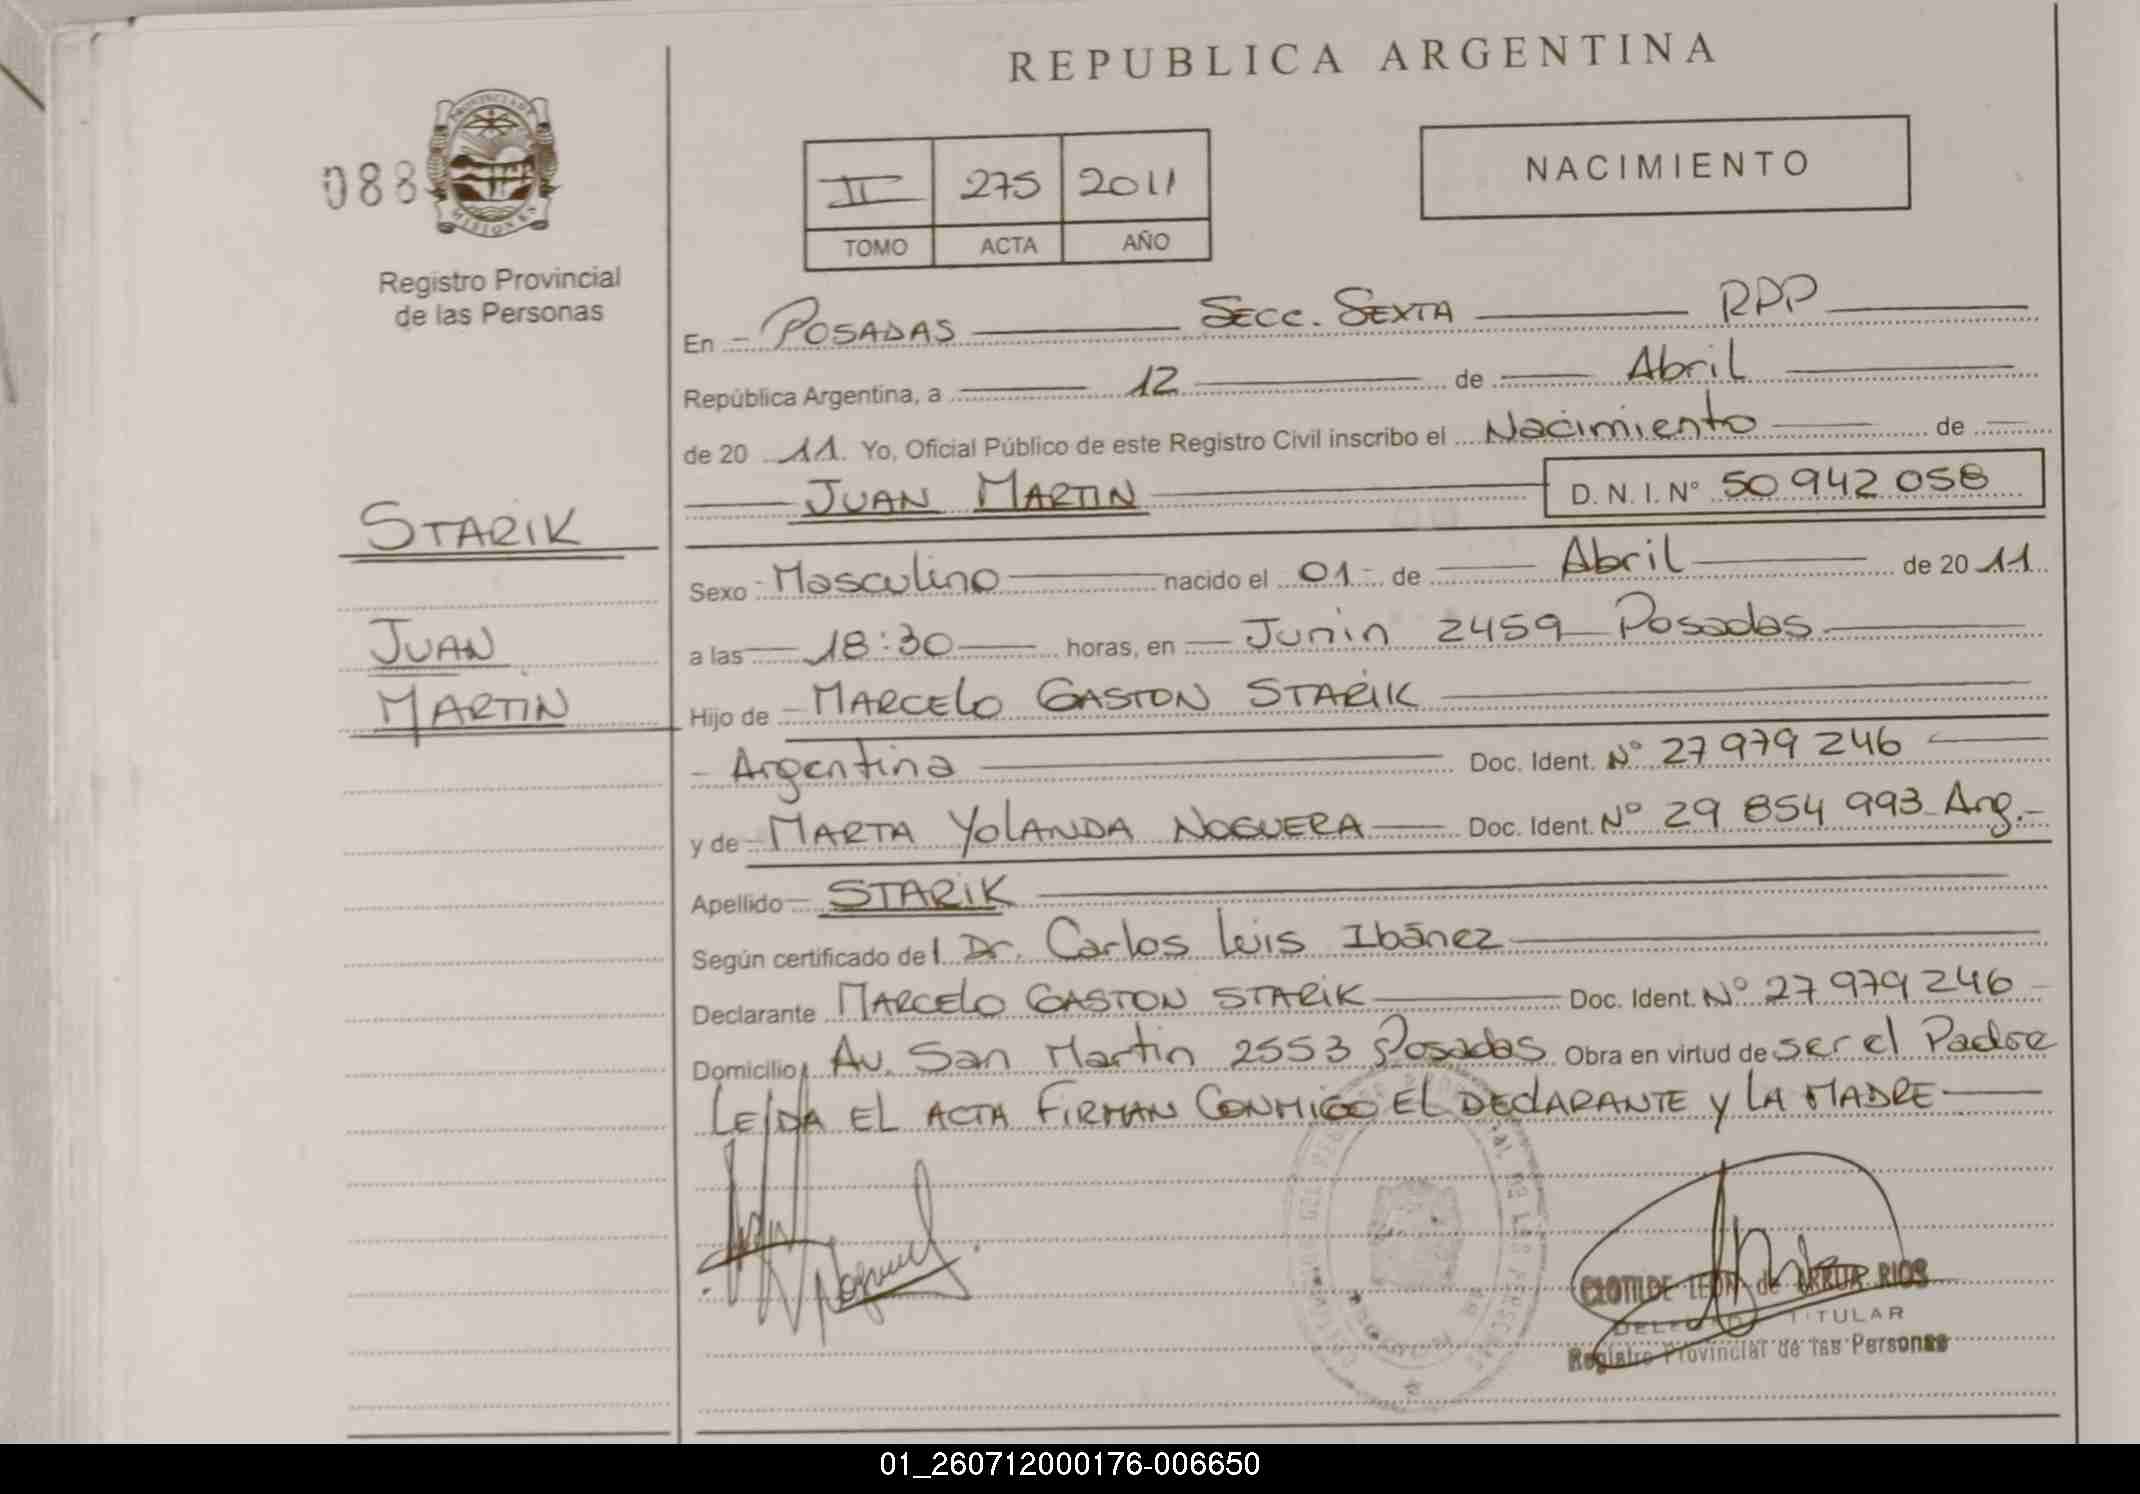 REPUBLICA ARGENTINA
088
PROVINCIA DE
MISIONES
Registro Provincial
de las Personas
II 275 2011
TOMO ACTA AÑO
NACIMIENTO
En - POSADAS SECC. SEXTA RPP
República Argentina, a 12 de Abril
de 20 11. Yo, Oficial Público de este Registro Civil inscribo el Nacimiento de
JUAN MARTIN D. N. I. N° 50 942 058
STARIK
JUAN
MARTIN
Sexo - Masculino nacido el 01 - de Abril de 20 11
a las 18:30 horas, en Junin 2459 Posadas
Hijo de - MARCELO GASTON STARIK
- Argentina Doc. Ident. N° 27 979 246
y de MARTA YOLANDA NOGUERA Doc. Ident. N° 29 854 993 Arg.-
Apellido STARIK
Según certificado del Dr. Carlos Luis Ibánez
Declarante MARCELO GASTON STARIK Doc. Ident. N° 27 979 246
Domicilio Av. San Martin 2553 Posadas Obra en virtud de ser el Padre
LEIDA EL ACTA FIRMAN CONMIGO EL DECLARANTE y LA MADRE
CLOTILDE LEON de ARRUA RIOS
DELEGADA TITULAR
Registro Provincial de las Personas
01_260712000176-006650